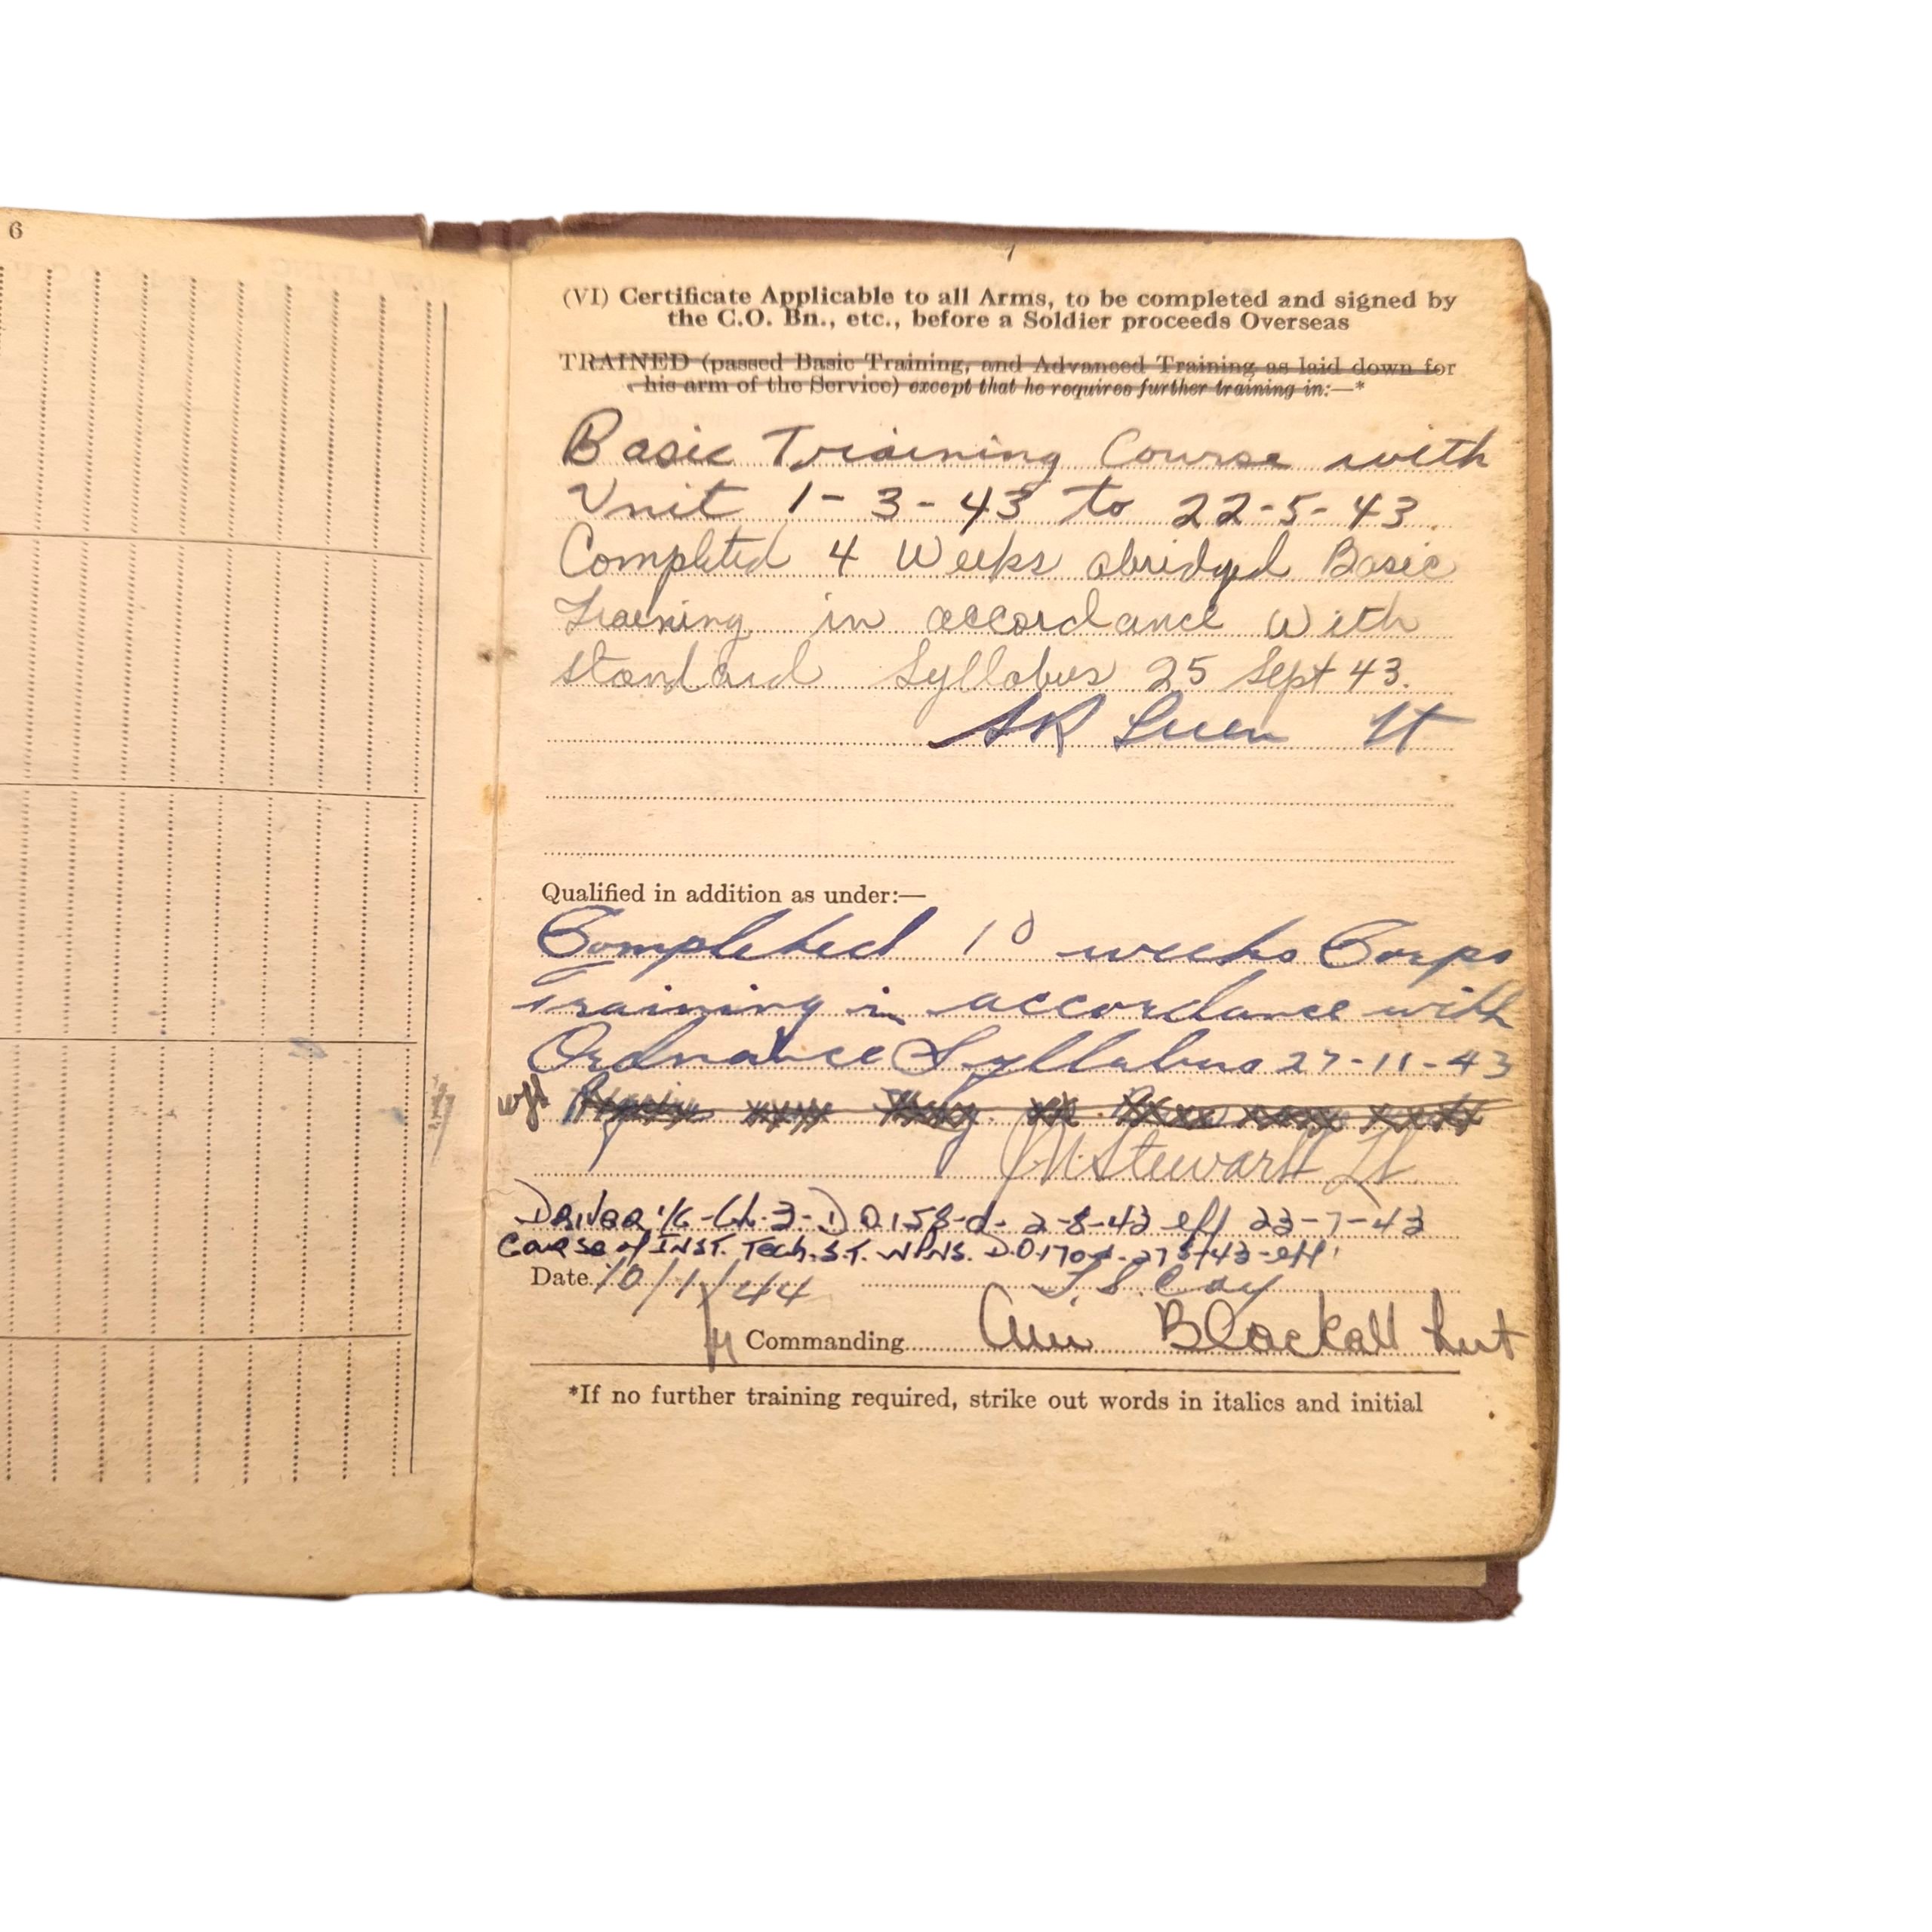 6
(VI) Certificate Applicable to all Arms, to be completed and signed by
the C.O. Bn., etc., before a Soldier proceeds Overseas
TRAINED (passed Basic Training, and Advanced Training as laid down for
his arm of the Service) except that he requires further training in:—*
Basic Training Course with
Unit 1-3-43 to 22-5-43.
Completed 4 Weeks abridged Basic
Training in accordance With
Standard Syllabus 25 Sept 43.
Lt
Qualified in addition as under:—
Completed 10 weeks Corps
Training in accordance with
Ordnance Syllabus 27-11-43
Stewart Lt
DRIVER i/c - Cl. 3 - D.O. 158-d- 2-8-43 eff 23-7-43
Course of INST. Tech. S.T. WPNS. D.O. 170
Date 10/1/44
Commanding Blackall Lieut
*If no further training required, strike out words in italics and initial